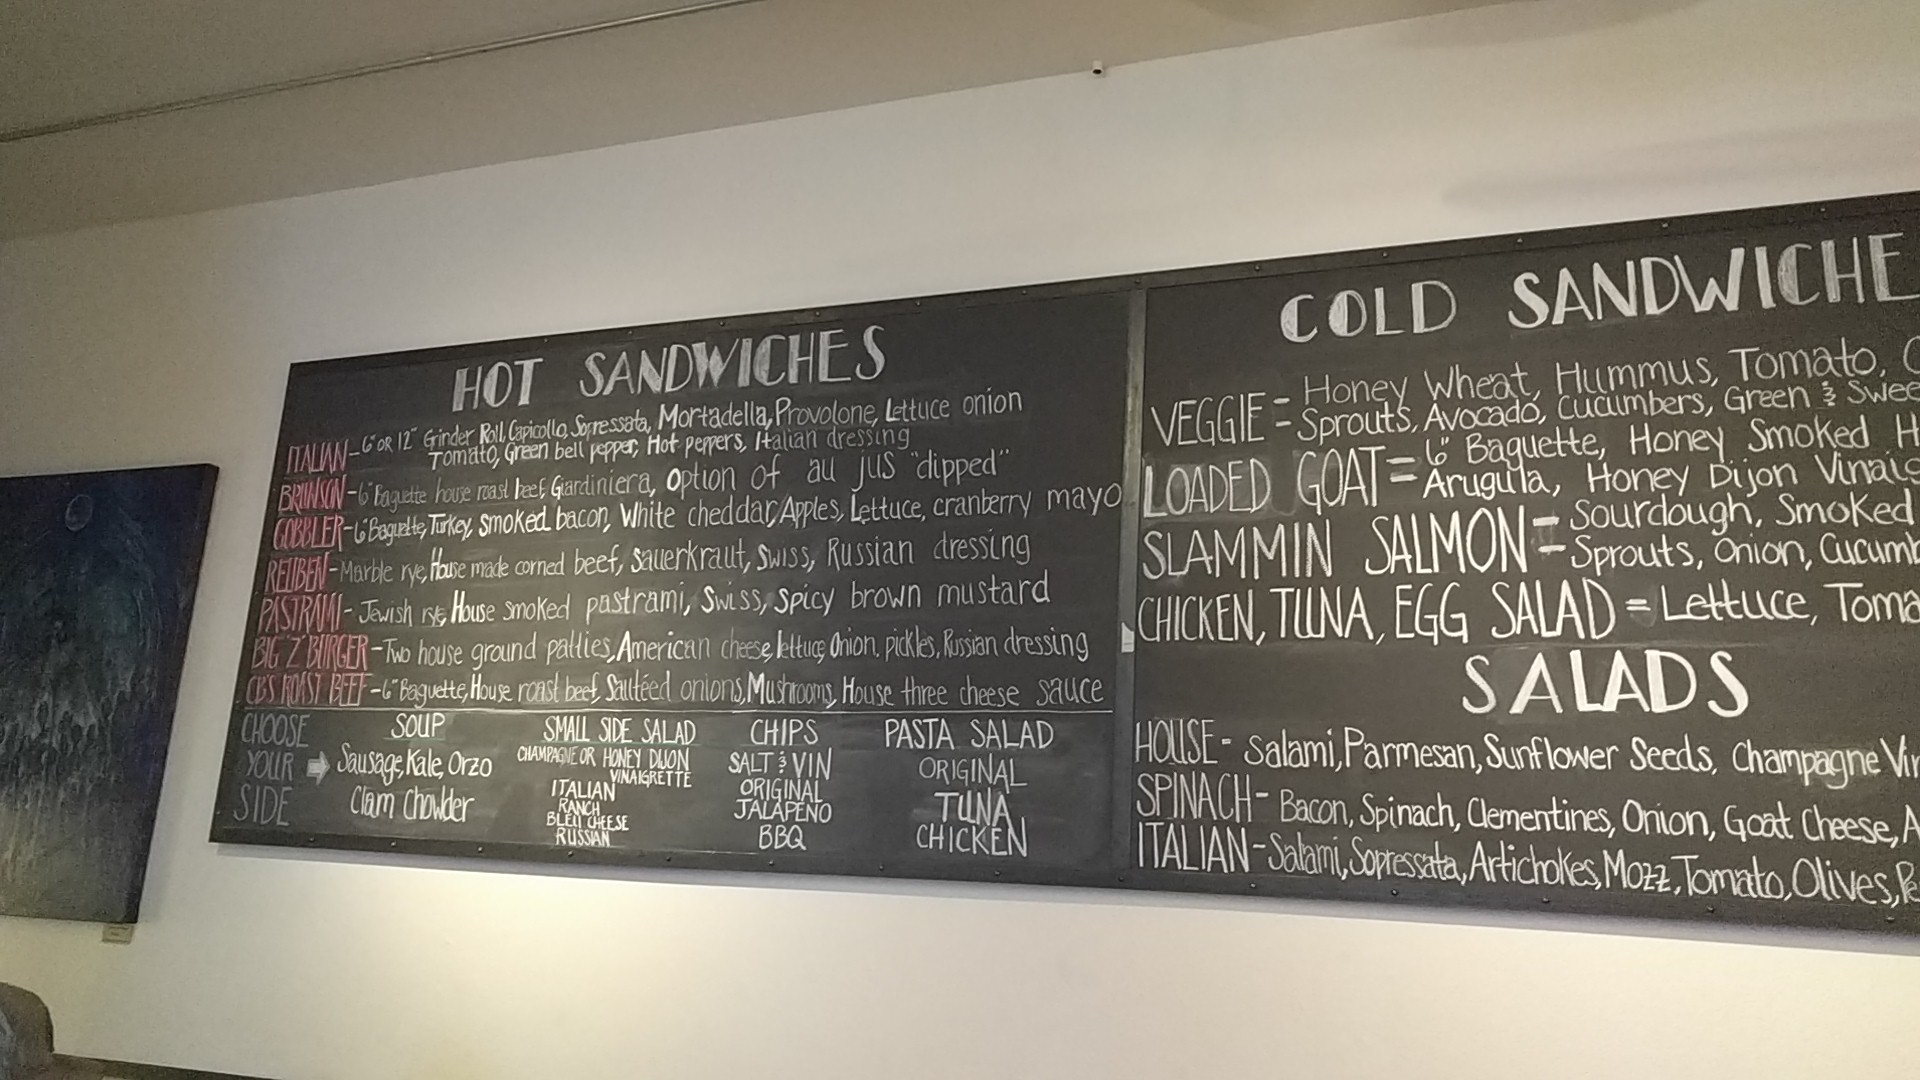 HOT SANDWICHES
ITALIAN - 6" OR 12" Grinder Roll, Capicollo, Sopressata, Mortadella, Provolone, Lettuce onion
Tomato, Green bell pepper, Hot peppers, Italian dressing
BRUNSON - 6" Baguette house roast beef, Giardiniera, option of au jus "dipped"
GOBBLER - 6" Baguette, Turkey, smoked bacon, White cheddar, Apples, Lettuce, cranberry mayo
REUBEN - Marble rye, House made corned beef, Sauerkraut, Swiss, Russian dressing
PASTRAMI - Jewish rye, House smoked pastrami, Swiss, Spicy brown mustard
BIG "Z" BURGER - Two house ground patties, American cheese, lettuce, Onion, pickles, Russian dressing
CB'S ROAST BEEF - 6" Baguette, House roast beef, Sautéed onions, Mushrooms, House three cheese sauce
CHOOSE
YOUR
SIDE
SOUP
Sausage, Kale, Orzo
Clam Chowder
SMALL SIDE SALAD
CHAMPAGNE OR HONEY DIJON
VINAIGRETTE
ITALIAN
RANCH
BLEU CHEESE
RUSSIAN
CHIPS
SALT & VIN
ORIGINAL
JALAPEÑO
BBQ
PASTA SALAD
ORIGINAL
TUNA
CHICKEN
COLD SANDWICHE
VEGGIE = Honey Wheat, Hummus, Tomato, C
Sprouts, Avocado, Cucumbers, Green & Swee
LOADED GOAT = 6" Baguette, Honey Smoked H
Arugula, Honey Dijon Vinaig
SLAMMIN SALMON = Sourdough, Smoked
Sprouts, Onion, Cucumb
CHICKEN, TUNA, EGG SALAD = Lettuce, Toma
SALADS
HOUSE - Salami, Parmesan, Sunflower Seeds, Champagne Vin
SPINACH - Bacon, Spinach, Clementines, Onion, Goat Cheese, A
ITALIAN - Salami, Sopressata, Artichokes, Mozz, Tomato, Olives, Pe